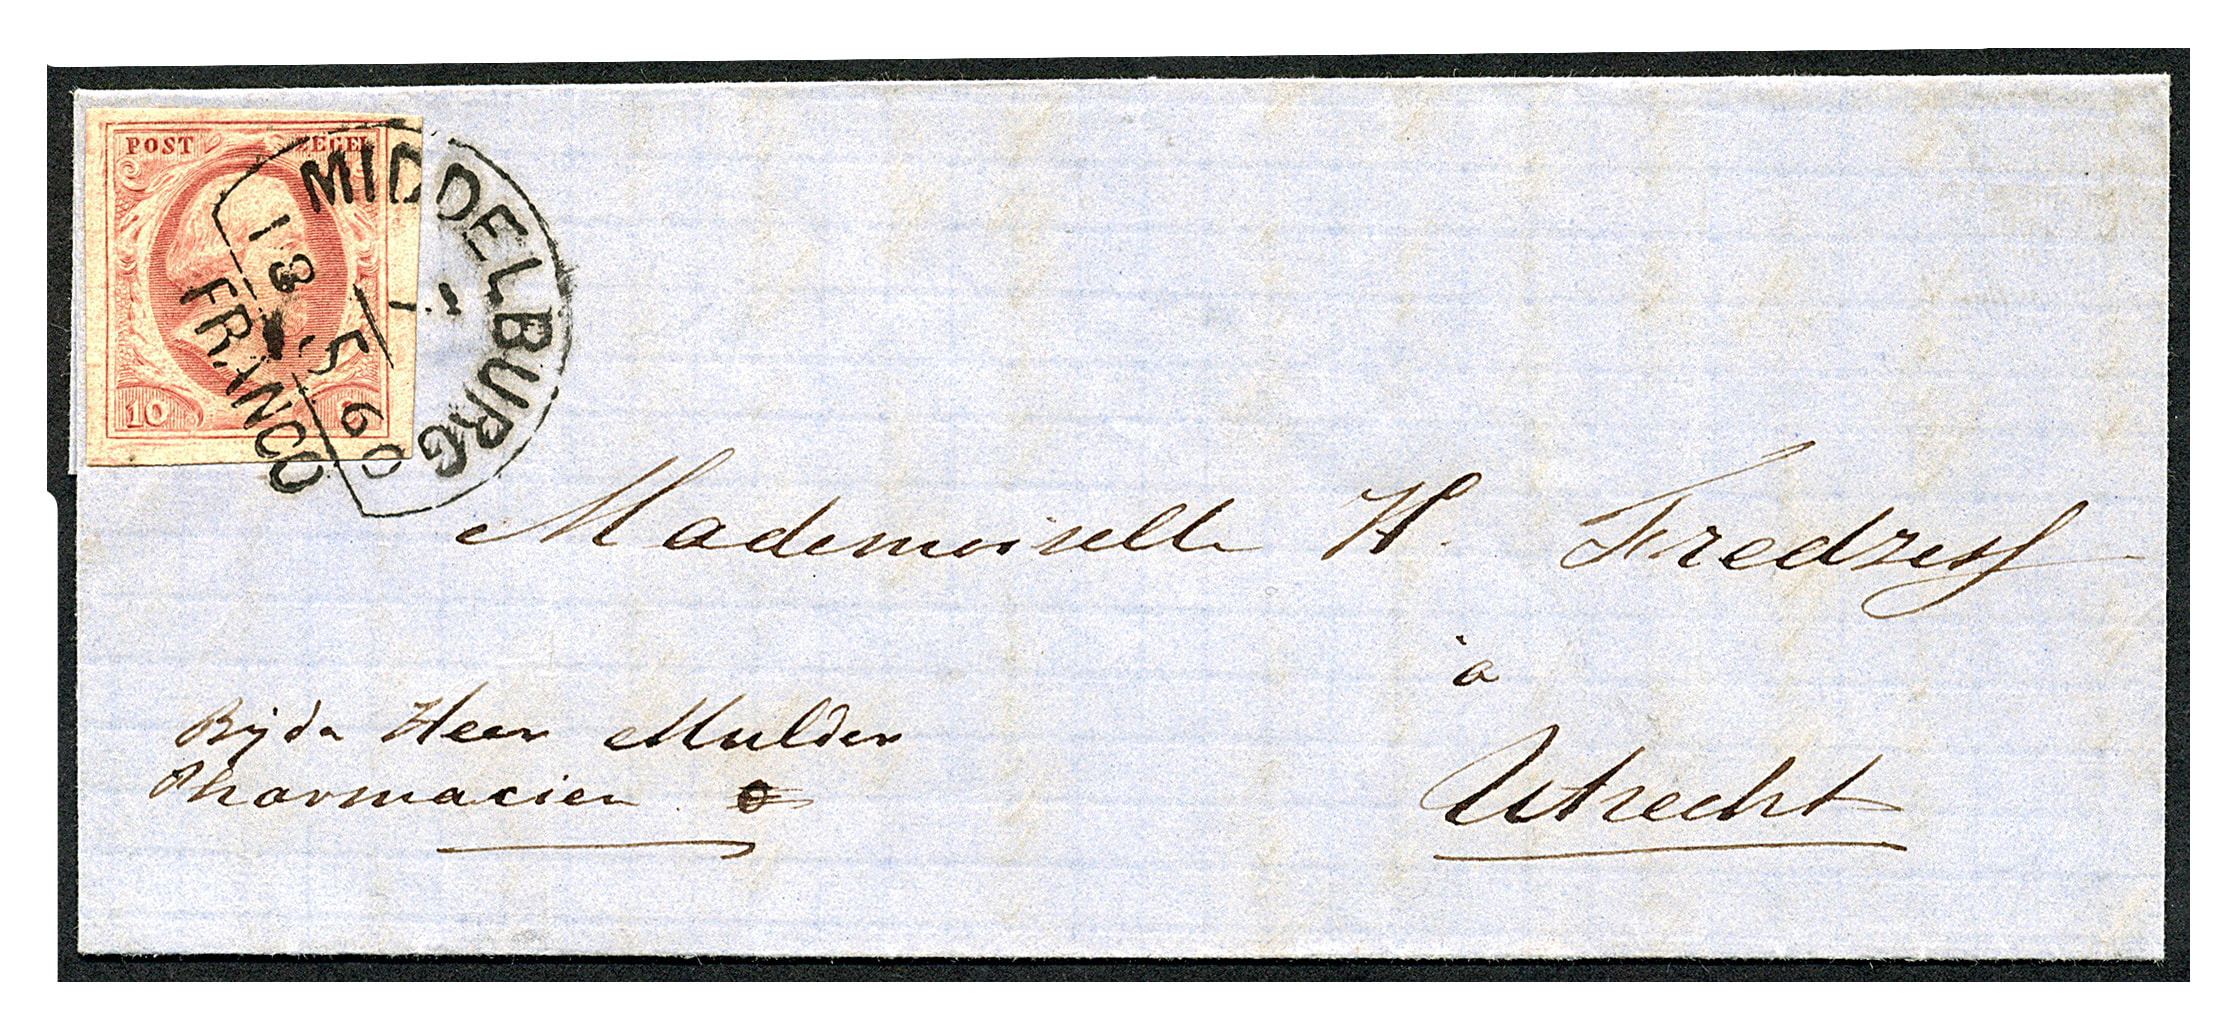 POST ZEGEL
10
MIDDELBURG
13 5 60
FRANCO
Mademoiselle H.
à
Utrecht
Bij de Heer Mulder
Pharmacien